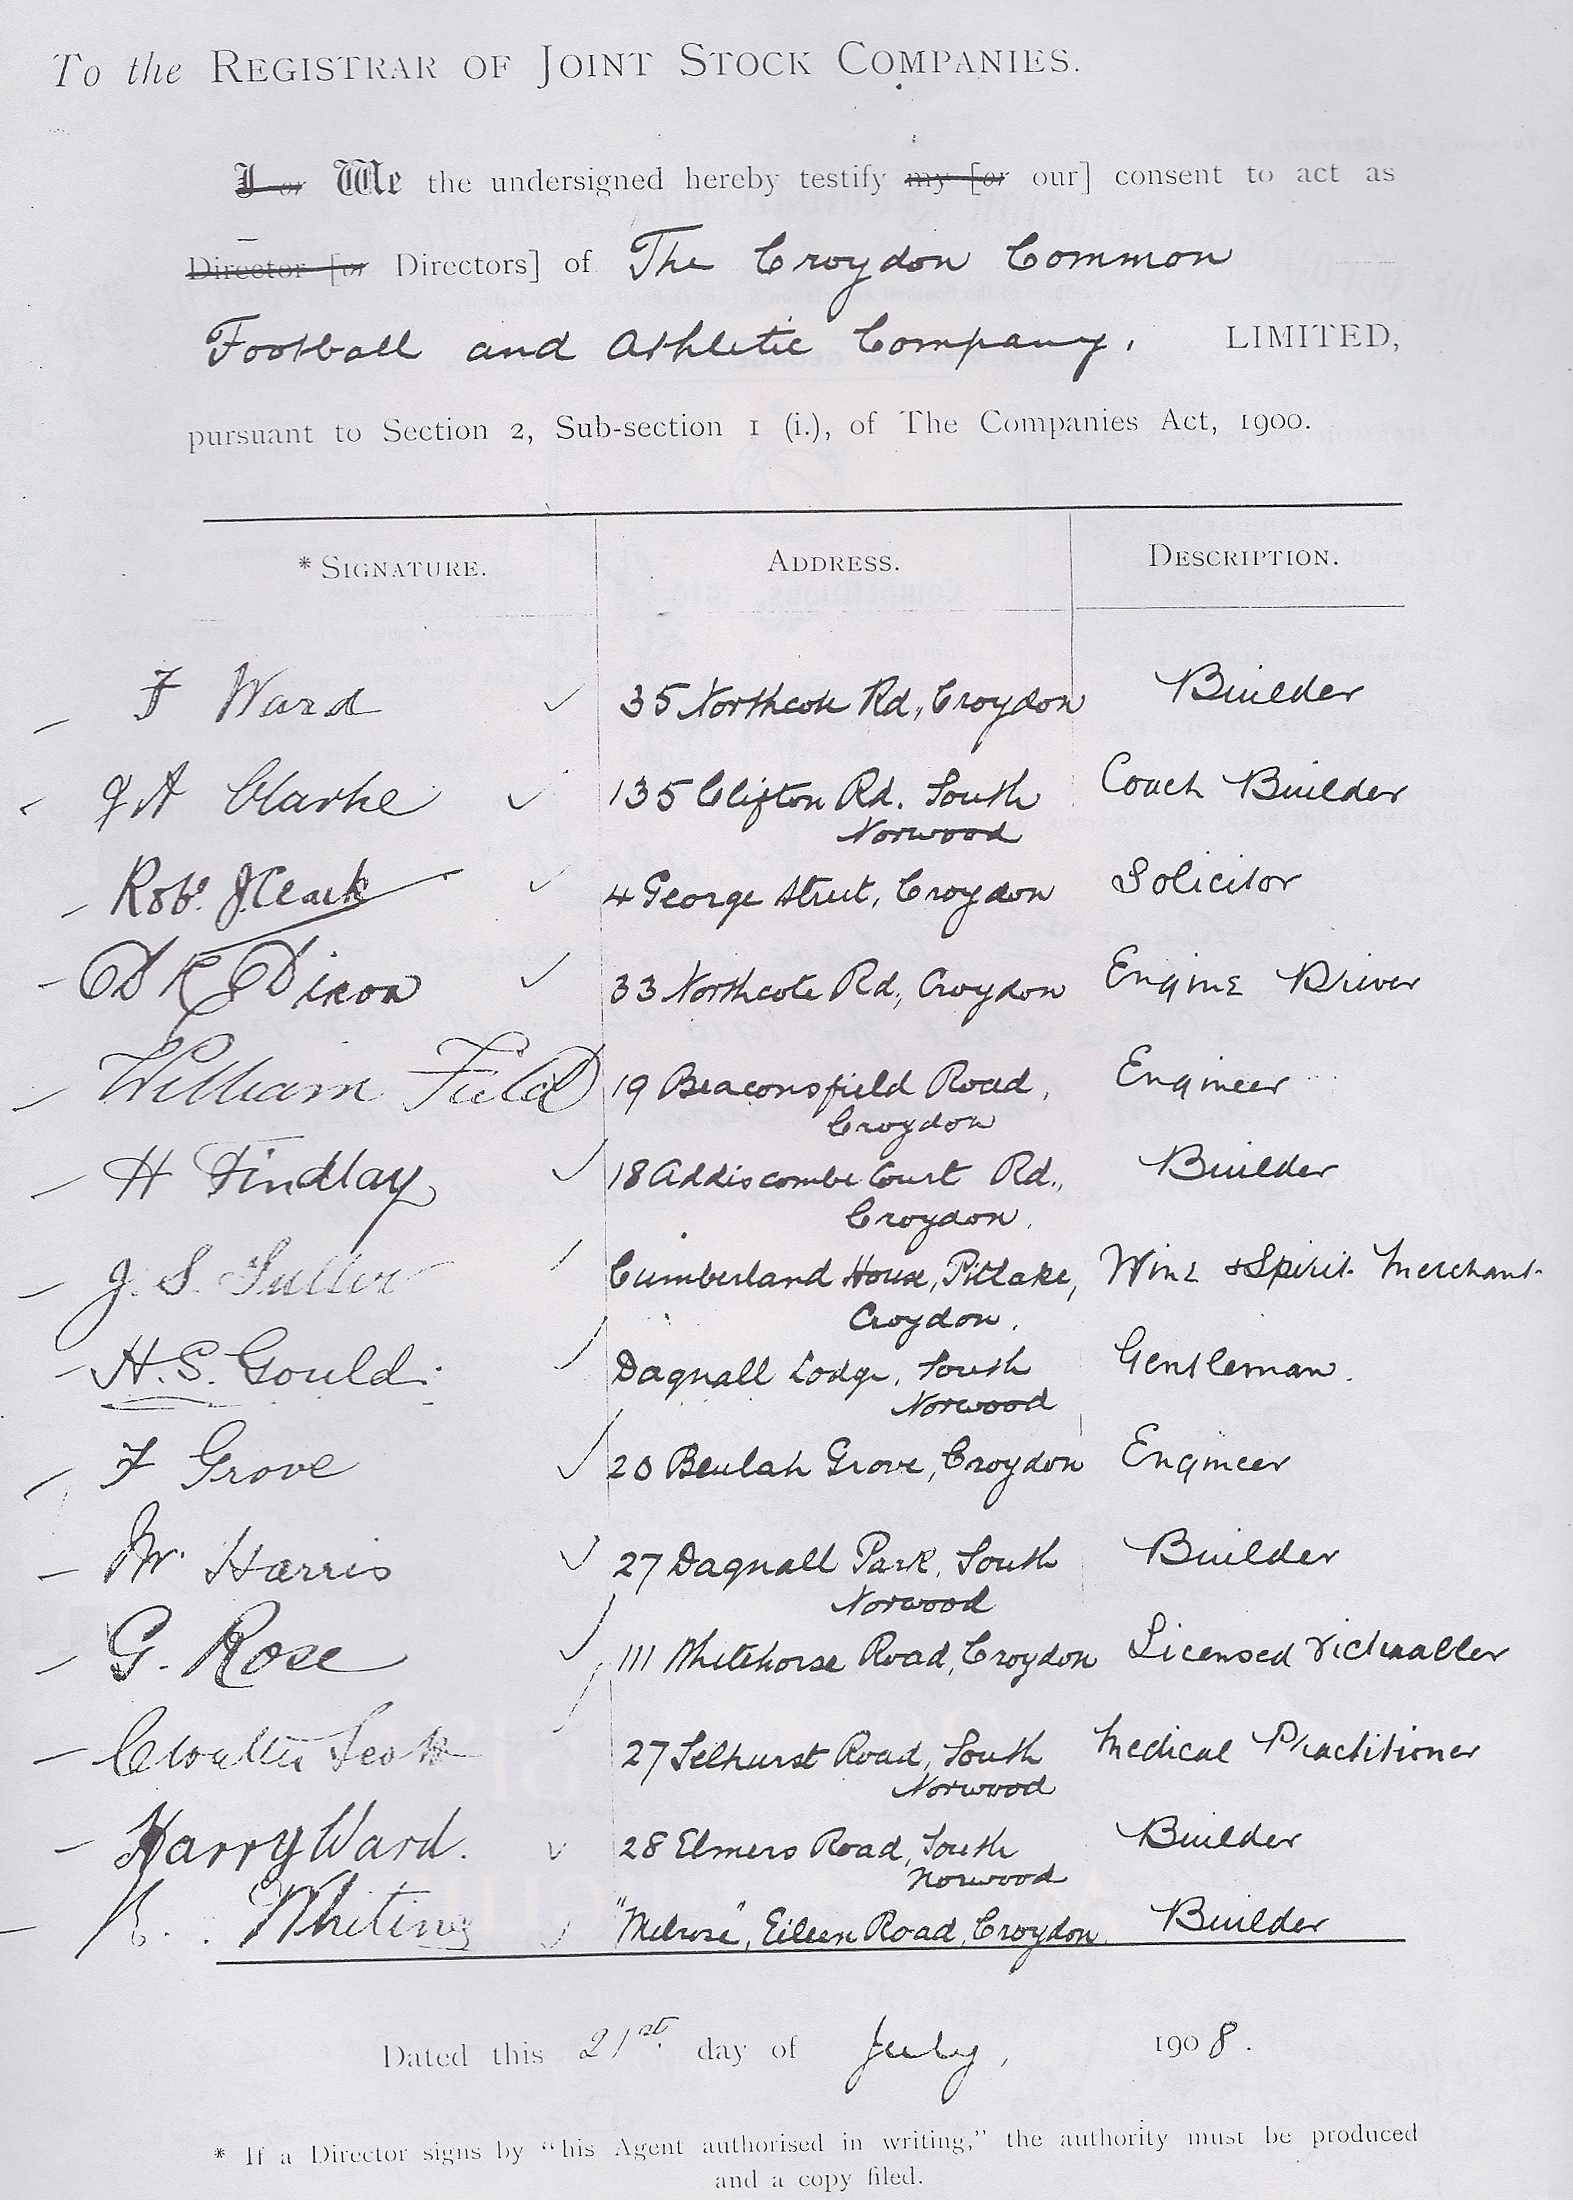 To the REGISTRAR OF JOINT STOCK COMPANIES.
I or We the undersigned hereby testify my [or our] consent to act as
Director [or Directors] of The Croydon Common
Football and Athletic Company, LIMITED,
pursuant to Section 2, Sub-section 1 (i.), of The Companies Act, 1900.
* SIGNATURE. ADDRESS. DESCRIPTION.
F Ward 35 Northcote Rd., Croydon Builder
A Clarke 135 Clifton Rd. South Coach Builder
Norwood
Robt. J Clark 4 George Street, Croydon Solicitor
Dixon 33 Northcote Rd., Croydon Engine Driver
William Field 19 Beaconsfield Road, Engineer
Croydon
H Findlay 18 Addiscombe Court Rd., Builder
Croydon.
J. S. Fuller Cumberland House, Pitlake, Wine & Spirit Merchant
Croydon.
H. S. Gould. Dagnall Lodge, South Gentleman.
Norwood
F Grove 20 Beulah Grove, Croydon Engineer
Harris 27 Dagnall Park, South Builder
Norwood
G. Rose 111 Whitehorse Road, Croydon Licensed Victualler
C Walter Scott 27 Selhurst Road, South Medical Practitioner
Norwood
Harry Ward. 28 Elmers Road, South Builder
Norwood
Whiting "Melrose", Eileen Road, Croydon. Builder
Dated this 21st. day of July, 1908.
* If a Director signs by "his Agent authorised in writing," the authority must be produced
and a copy filed.